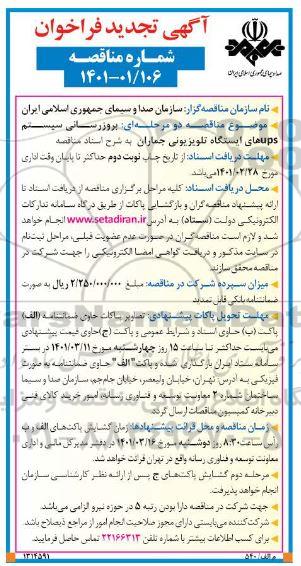 آگهی تجدید فراخوان
شماره مناقصه
۱۴۰۱-۰۱/۱۰۶
صدا و سیمای جمهوری اسلامی ایران
نام سازمان مناقصه‌گزار: سازمان صدا و سیمای جمهوری اسلامی ایران
موضوع مناقصه دو مرحله‌ای: بروزرسانی سیستم
upsهای ایستگاه تلویزیونی جماران به شرح اسناد مناقصه
مهلت دریافت اسناد: از تاریخ چاپ نوبت دوم حداکثر تا پایان وقت اداری
مورخ ۱۴۰۱/۰۲/۲۸ می‌باشد.
محل دریافت اسناد: کلیه مراحل برگزاری مناقصه از دریافت اسناد تا
ارائه پیشنهاد مناقصه‌گران و بازگشایی پاکات از طریق درگاه سامانه تدارکات
الکترونیکی دولت (ستاد) به آدرس www.setadiran.ir انجام خواهد
شد و لازم است مناقصه‌گران در صورت عدم عضویت قبلی، مراحل ثبت‌نام
در سایت مذکور و دریافت گواهی امضا الکترونیکی را جهت شرکت در
مناقصه محقق سازند.
میزان سپرده شرکت در مناقصه: مبلغ ۲/۲۵۰/۰۰۰/۰۰۰ ریال به صورت
ضمانتنامه بانکی قابل تمدید
مهلت تحویل پاکات پیشنهادی: تصاویر پاکات حاوی ضمانتنامه (الف)
پاکت (ب) حاوی اسناد و شرایط عمومی و پاکت (ج) حاوی قیمت پیشنهادی
می‌بایست حداکثر تا ساعت ۱۵ روز چهارشنبه مورخ ۱۴۰۱/۰۳/۱۱ در بستر
سامانه ستاد ایران بارگذاری شده و پاکت "الف" حاوی ضمانتنامه به صورت
فیزیکی به آدرس: تهران، خیابان ولیعصر، خیابان جام‌جم، سازمان صدا و سیما
ساختمان شماره ۲ معاونت توسعه و فناوری رسانه، امور خرید کالای فنی
دبیرخانه کمیسیون مناقصات ارسال گردد.
زمان مناقصه و محل قرائت پیشنهادها: زمان گشایش پاکت‌های الف و ب
رأس ساعت ۸:۳۰ روز دوشنبه مورخ ۱۴۰۱/۰۳/۱۶ در دفتر مدیرکل مالی و اداری
معاونت توسعه و فناوری رسانه واقع در تهران قرائت خواهد شد.
مرحله دوم گشایش پاکت‌های ج پس از ارائه نظر کارشناسی سازمان
انجام خواهد پذیرفت.
جهت شرکت در مناقصه دارا بودن رتبه ۵ در حوزه نیرو الزامی می‌باشد.
شرکت‌کننده می‌بایستی دارای مجوز صلاحیت انجام امور از مراجع ذیصلاح باشد.
برای کسب اطلاعات بیشتر با شماره تلفن ۲۲۱۶۶۳۱۳ تماس حاصل فرمایید.
م الف/ ۵۴۰
۱۳۱۴۵۹۱